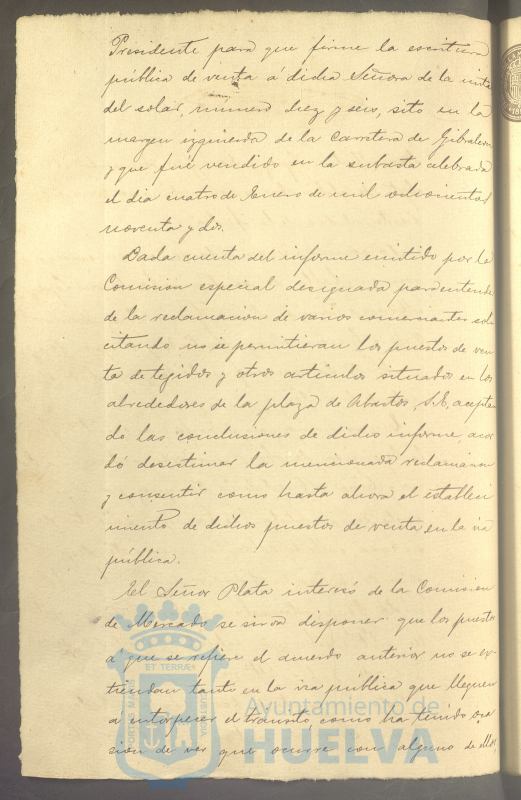 Presidente para que firme la escritura
pública de venta á dicha Señora de la mitad
del solar, número diez y seis, sito en la
margen izquierda de la carretera de Gibraleon
y que fué vendido en la subasta celebrada
el dia cuatro de Enero de mil ochocientos
noventa y dos.
Dada cuenta del informe emitido por la
Comision especial designada para entender
de la reclamacion de varios comerciantes soli
citando no se permitieran los puestos de ven
ta de tegidos y otros articulos situados en los
alrededores de la plaza de Abastos, S.E. aceptan
do las conclusiones de dicho informe, acor
dó desestimar la mencionada reclamacion
y consentir como hasta ahora el estableci
miento de dichos puestos de venta en la via
pública.
El Señor Plata interesó de la Comision
de Mercado se sirva disponer que los puestos
á que se refiere el acuerdo anterior no se ex
tiendan tanto en la via pública que lleguen
á entorpecer el tránsito, como ha tenido oca
sion de ver que ocurre con alguno de ellos,
PORTUS MARIS
ET TERRÆ
CUSTODIA
Ayuntamiento de
HUELVA